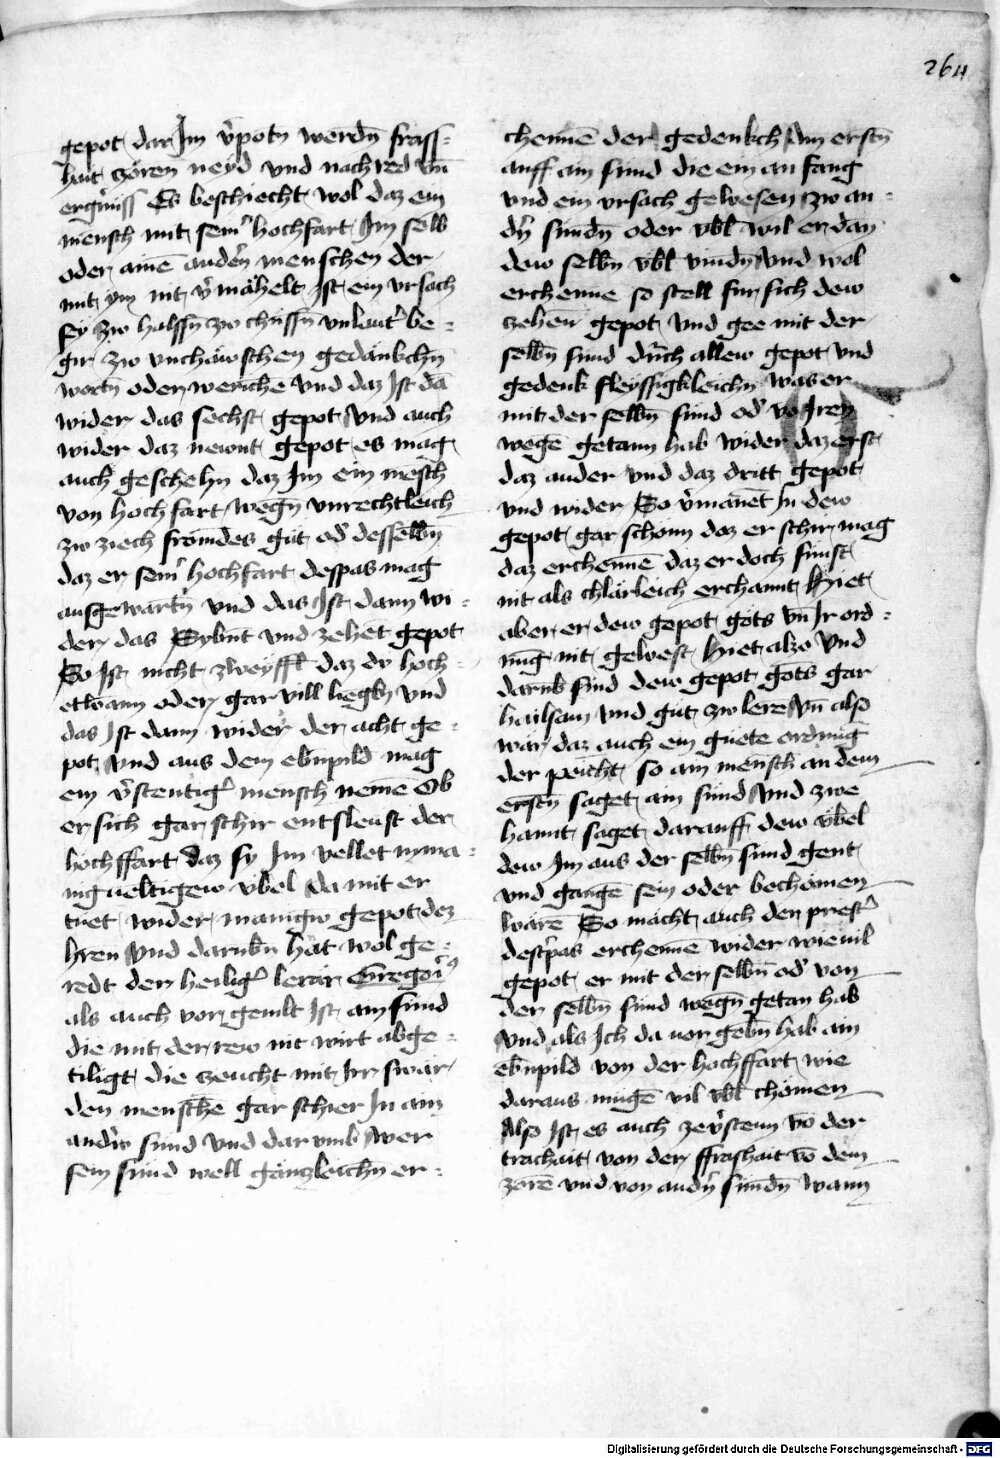 264
gepot dar Im v̓potn̄ werdn̄ frass-
hait zören neyd vnd nachred vn̄
ergn̓iss Es beschiecht wol daz ein
mensch mit sein̓ hochfart Im selb
oder ainē anden̓ menschen der
mit ym nit v̓mähelt Ist ein vrsach
sy zw halssn̄ zw chüssn̄ vnlaut̓ be-
gir zw vnchäwschen gedänkchn̄
wortn̄ oder weriche vnd daz Ist dā
wider das sechst gepot vnd auch
wider daz newnt gepot es mag
auch geschehn daz Im ein mēsch
von hochfart wegn̄ vnrechtleich
zw ziech frömdes güt od̓ desselbn̄
daz er sein̓ hochfart despas mag
ausgewartn̄ vnd das Ist dann wi-
der das Sybnt vnd zehēt gepot
So Ist nicht zweyffl daz dy hoch-
etwann oder gar vill liegn̄ vnd
das Ist dann wider der acht ge-
pot vnd aus dem ebnpild mag
ein v̓stentig̓ mensch nemē Ob
er sich gar schir entsleust der
hochffart daz sy Im vellet in ma-
nigueltigew v̈bel da mit er
tuet wider manigw gepot dez
hren vnd darubn̄ hat wol ge-
redt der heilig̓ lerär Gregoi̓9
als auch vor gemlt Ist ain sünd
die mit der rew nit wirt abge-
tiligt die zeucht mit Irr swär
den menschē gar schier In ain
andr̓w sünd vnd dar vmb wer
sein sünd well gänczleichn̄ er-
chennē der gedenkch Am erstn̄
auff ain sünd die ein an fang
vnd ein vrsach gewesen zw an-
dn̓ sündn̄ oder vbl wil er dan
dew selbn̄ vbl vindn̄ vnd wol
erchenne so stell fur sich dew
zehen gepot vnd gee mit der
selbn̄ sünd durch allew gepot vnd
gedenk fleyssigkleichn̄ was er
mit der selbn̄ sünd od̓ vō Iren
wegē getann hab wider daz erst
daz ander vnd daz dritt gepot
vnd wider So v̓manēt In dew
gepot gar schönn daz er schir mag
daz erchennē daz er doch sünst
nit als chlärleich erchannt hiet
aber er dew gepot gots vn̄ Ir ord-
nūg nit gewest hiet alzo vnd
darūb sind dew gepot gots gar
hailsam vnd gut zw lere vn̄ also
wär daz auch ein guete ordnūg
der peicht so ain mensch an dem
erstn̄ saget ain sünd vnd zwe
hannt saget darauff dew v̈bel
dew Im aus der selbn̄ sünd gent
vnd gangē sein oder bechömen
wärē So mächt auch den prest̓
dest̓pas erchenne wider wieuil
gepot er mit der selbn̄ od̓ von
der selbn̄ sünd wegn̄ getan hab
vnd als Ich da uor gebn̄ hab ain
ebnpild von der hochffart wie
daraus mugē vil vbl chömen
Also Ist es auch zev̓stenn vō der
trachait von der ffrashait vō dem
zorē vnd von andn̓ sündn̄ wann
Digitalisierung gefördert durch die Deutsche Forschungsgemeinschaft - DFG